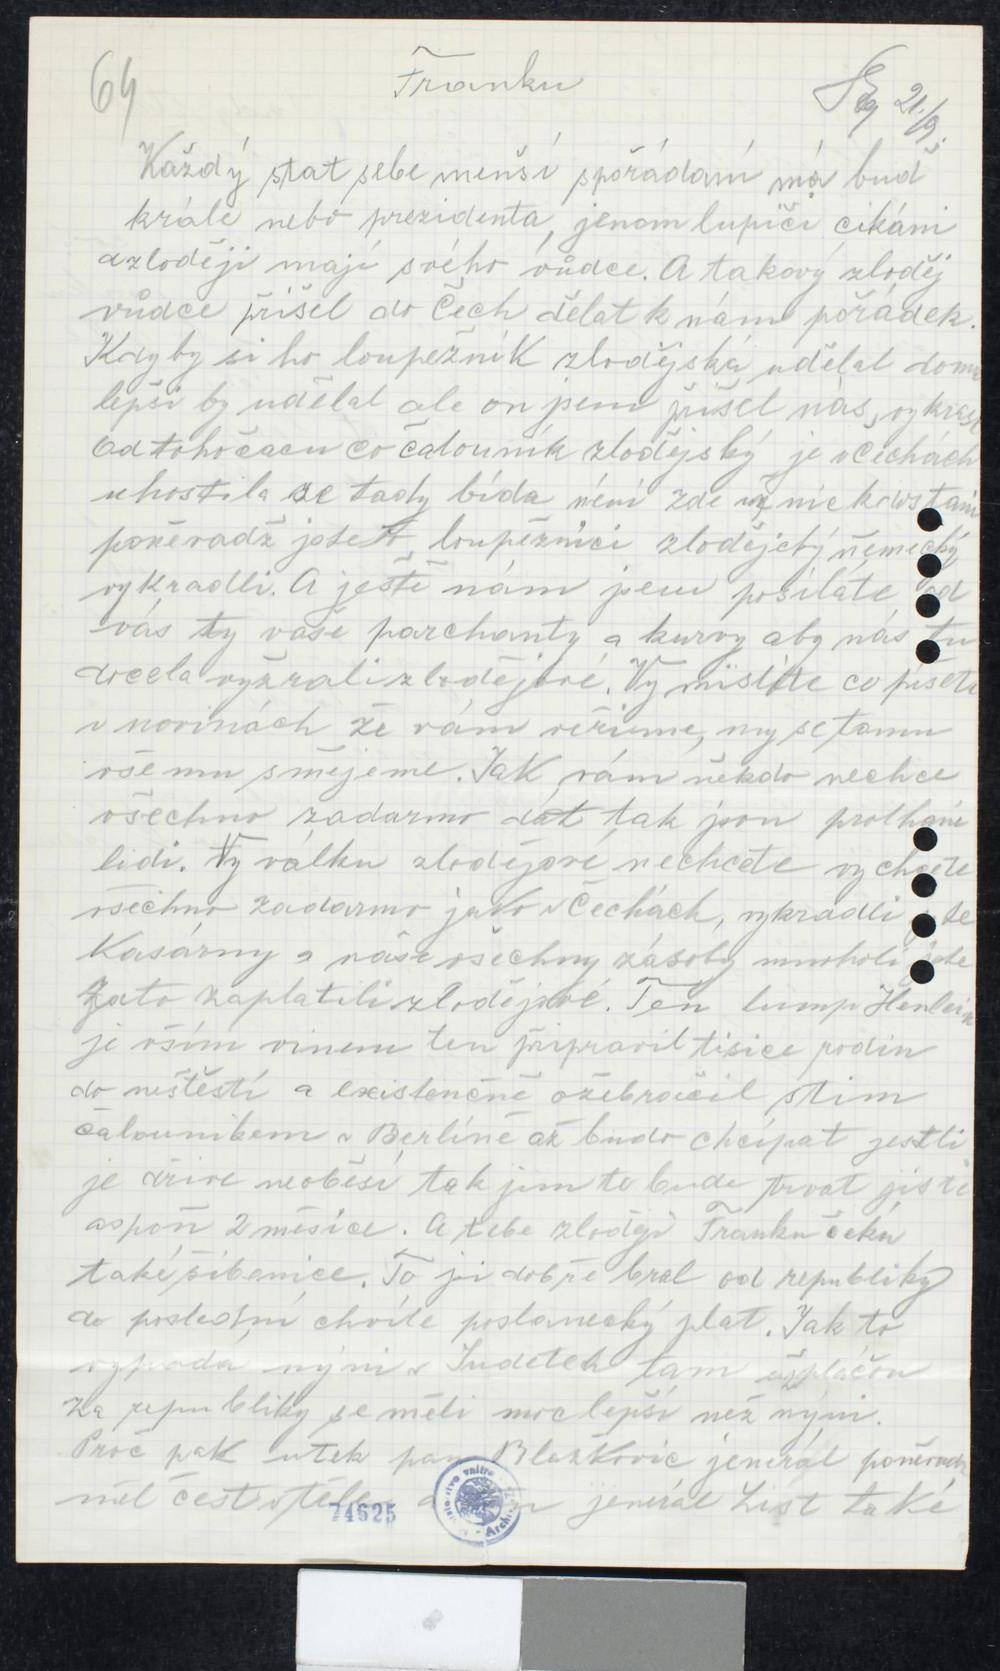 64
Franku
21/9.
Každý stat sebe menší spořádaní má buď
krále nebo prezidenta, jenom lupiči cikáni
a zloději maji svého vůdce. A takový zloděj
vůdce přišel do Čech dělat k nám pořádek.
Kdyby si ho loupežník zlodějská udělal doma
lepší by udělal ale on jsem přišel nás vykrast
Od toho času co čalouník zlodějský je v Čechách
uhostila se tady bída není zde už nic k dostaní
poněvadž jste to loupežníci zlodějcký německý
vykradli. A ještě nám jsem posíláte od
vás ty vaše parchanty a kurvy aby nás tu
docela vyžrali zlodějové. Vy mislíte co píšete
v novinách že vám veřieme, my se tomu
všemu smějeme. Jak vám někdo nechce
všechno zadarmo dát tak jsou prolhaní
lidi. Vy válku zlodějové nechcete vy chcete
všechno zadarmo jako v Čechách, vykradli jste
Kasárny a náše všechny zásoby mnoholi jste
Zato zaplatili zlodějové. Ten lump Henlein
je vším vinem ten připravil tisice rodin
do neštěstí a existenčně ožebračil stim
čalounikem v Berlíně až budo chcípat jestli
je dřive neoběsí tak jim to bude trvat jistě
aspoň 2 měsíce. A tebe zloději Franku čeká
také šibenice. To jsi dobře bral od republiky
do poslední chvíle poslanecký plat. Jak to
vypadá nýni v Sudetech tam už pláčou
za republiky se měli moc lepší než nýni.
Proč pak utek pan Blažkovic jenerál poněvadž
měl čest v těle a jenerál List také
74625